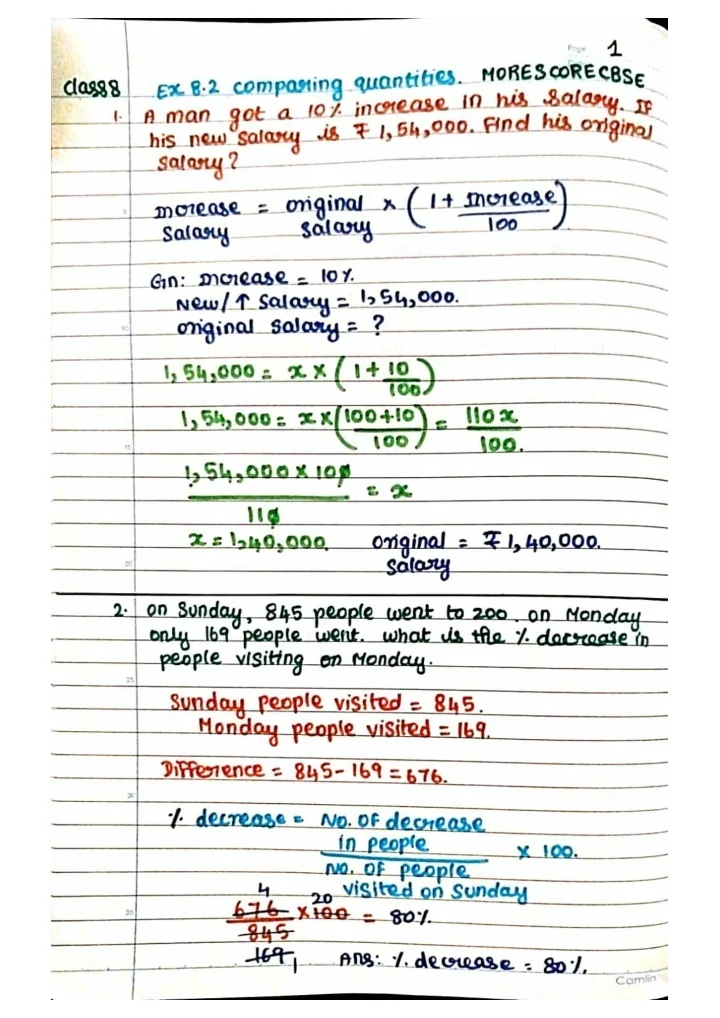 Page 1
class 8 Ex 8.2 comparing quantities. MORESCORECBSE
1. A man got a 10% increase in his salary. If
his new salary is ₹ 1,54,000. Find his original
salary?
Increase salary = original salary × (1 + Increase/100)
Gn: Increase = 10%.
New/↑ Salary = 1,54,000.
original salary = ?
1,54,000 = x × (1 + 10/100)
1,54,000 = x × (100+10/100) = 110x/100.
1,54,000 × 100/110 = x
x = 1,40,000. original salary = ₹ 1,40,000.
2. on Sunday, 845 people went to zoo. on Monday
only 169 people went. what is the % decrease in
people visiting on Monday.
Sunday people visited = 845.
Monday people visited = 169.
Difference = 845 - 169 = 676.
% decrease = No. of decrease in people/No. of people visited on Sunday × 100.
4 20
676/845 × 100 = 80%.
169 1 Ans: % decrease = 80%.
Camlin